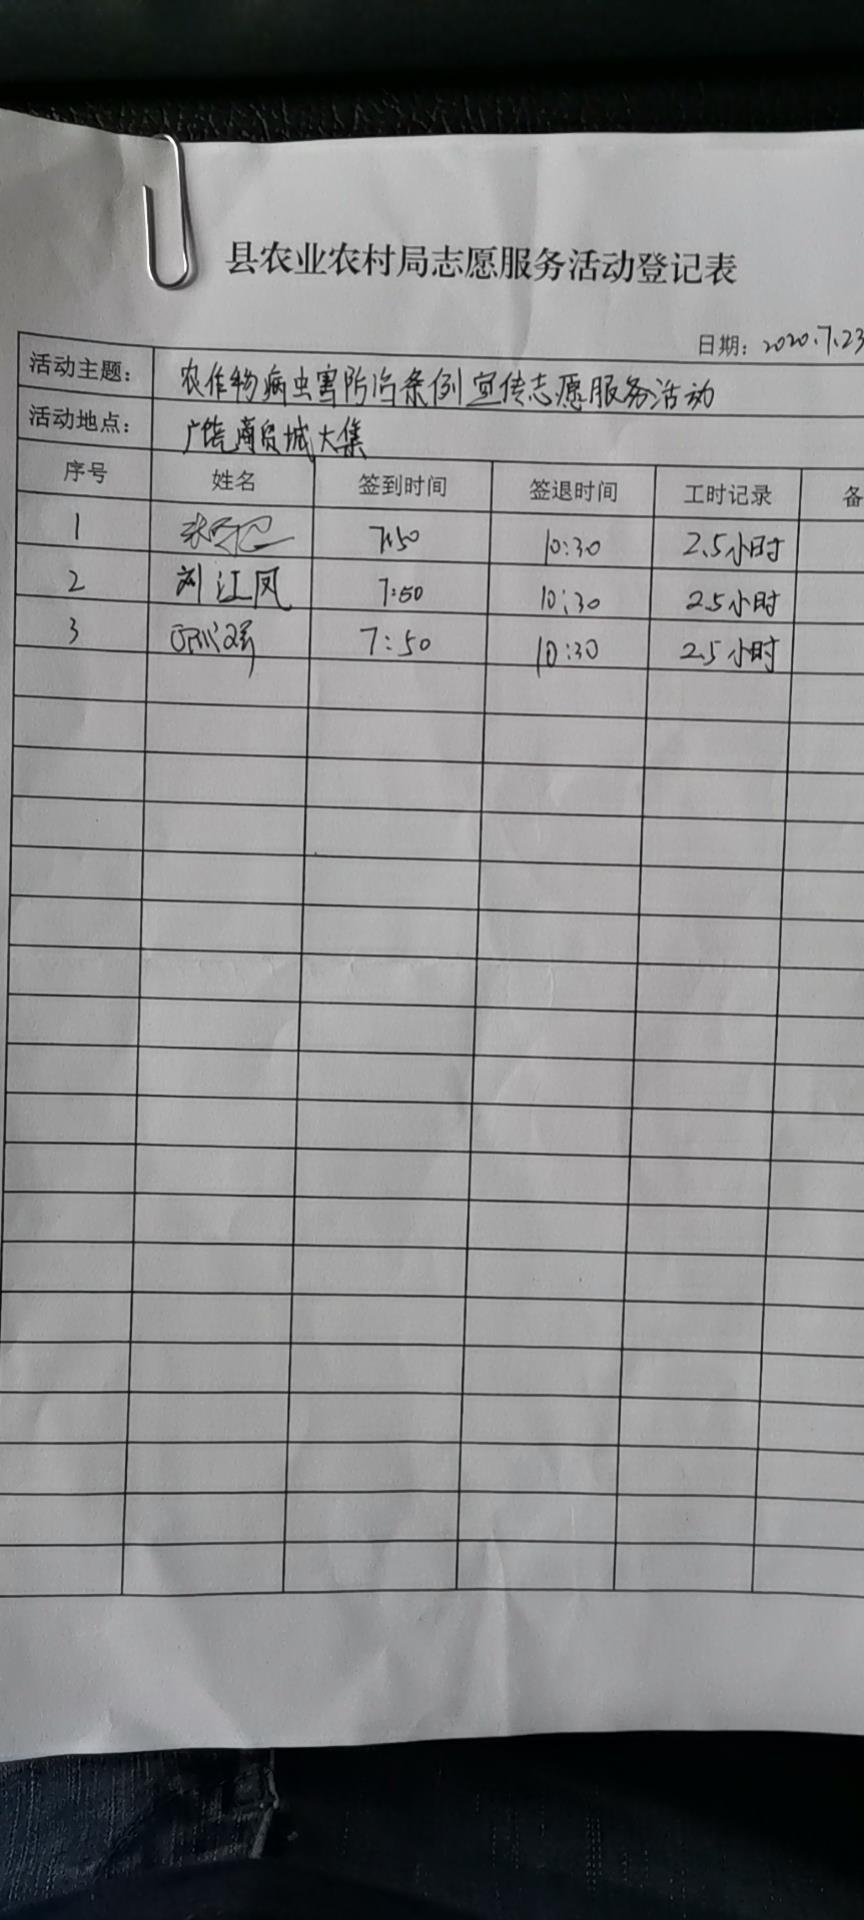 县农业农村局志愿服务活动登记表
日期：2020.7.23
活动主题： 农作物病虫害防治条例宣传志愿服务活动
活动地点： 广饶商贸城大集
序号 姓名 签到时间 签退时间 工时记录 备
1 7:50 10:30 2.5小时
2 刘江凤 7:50 10:30 2.5小时
3 7:50 10:30 2.5小时